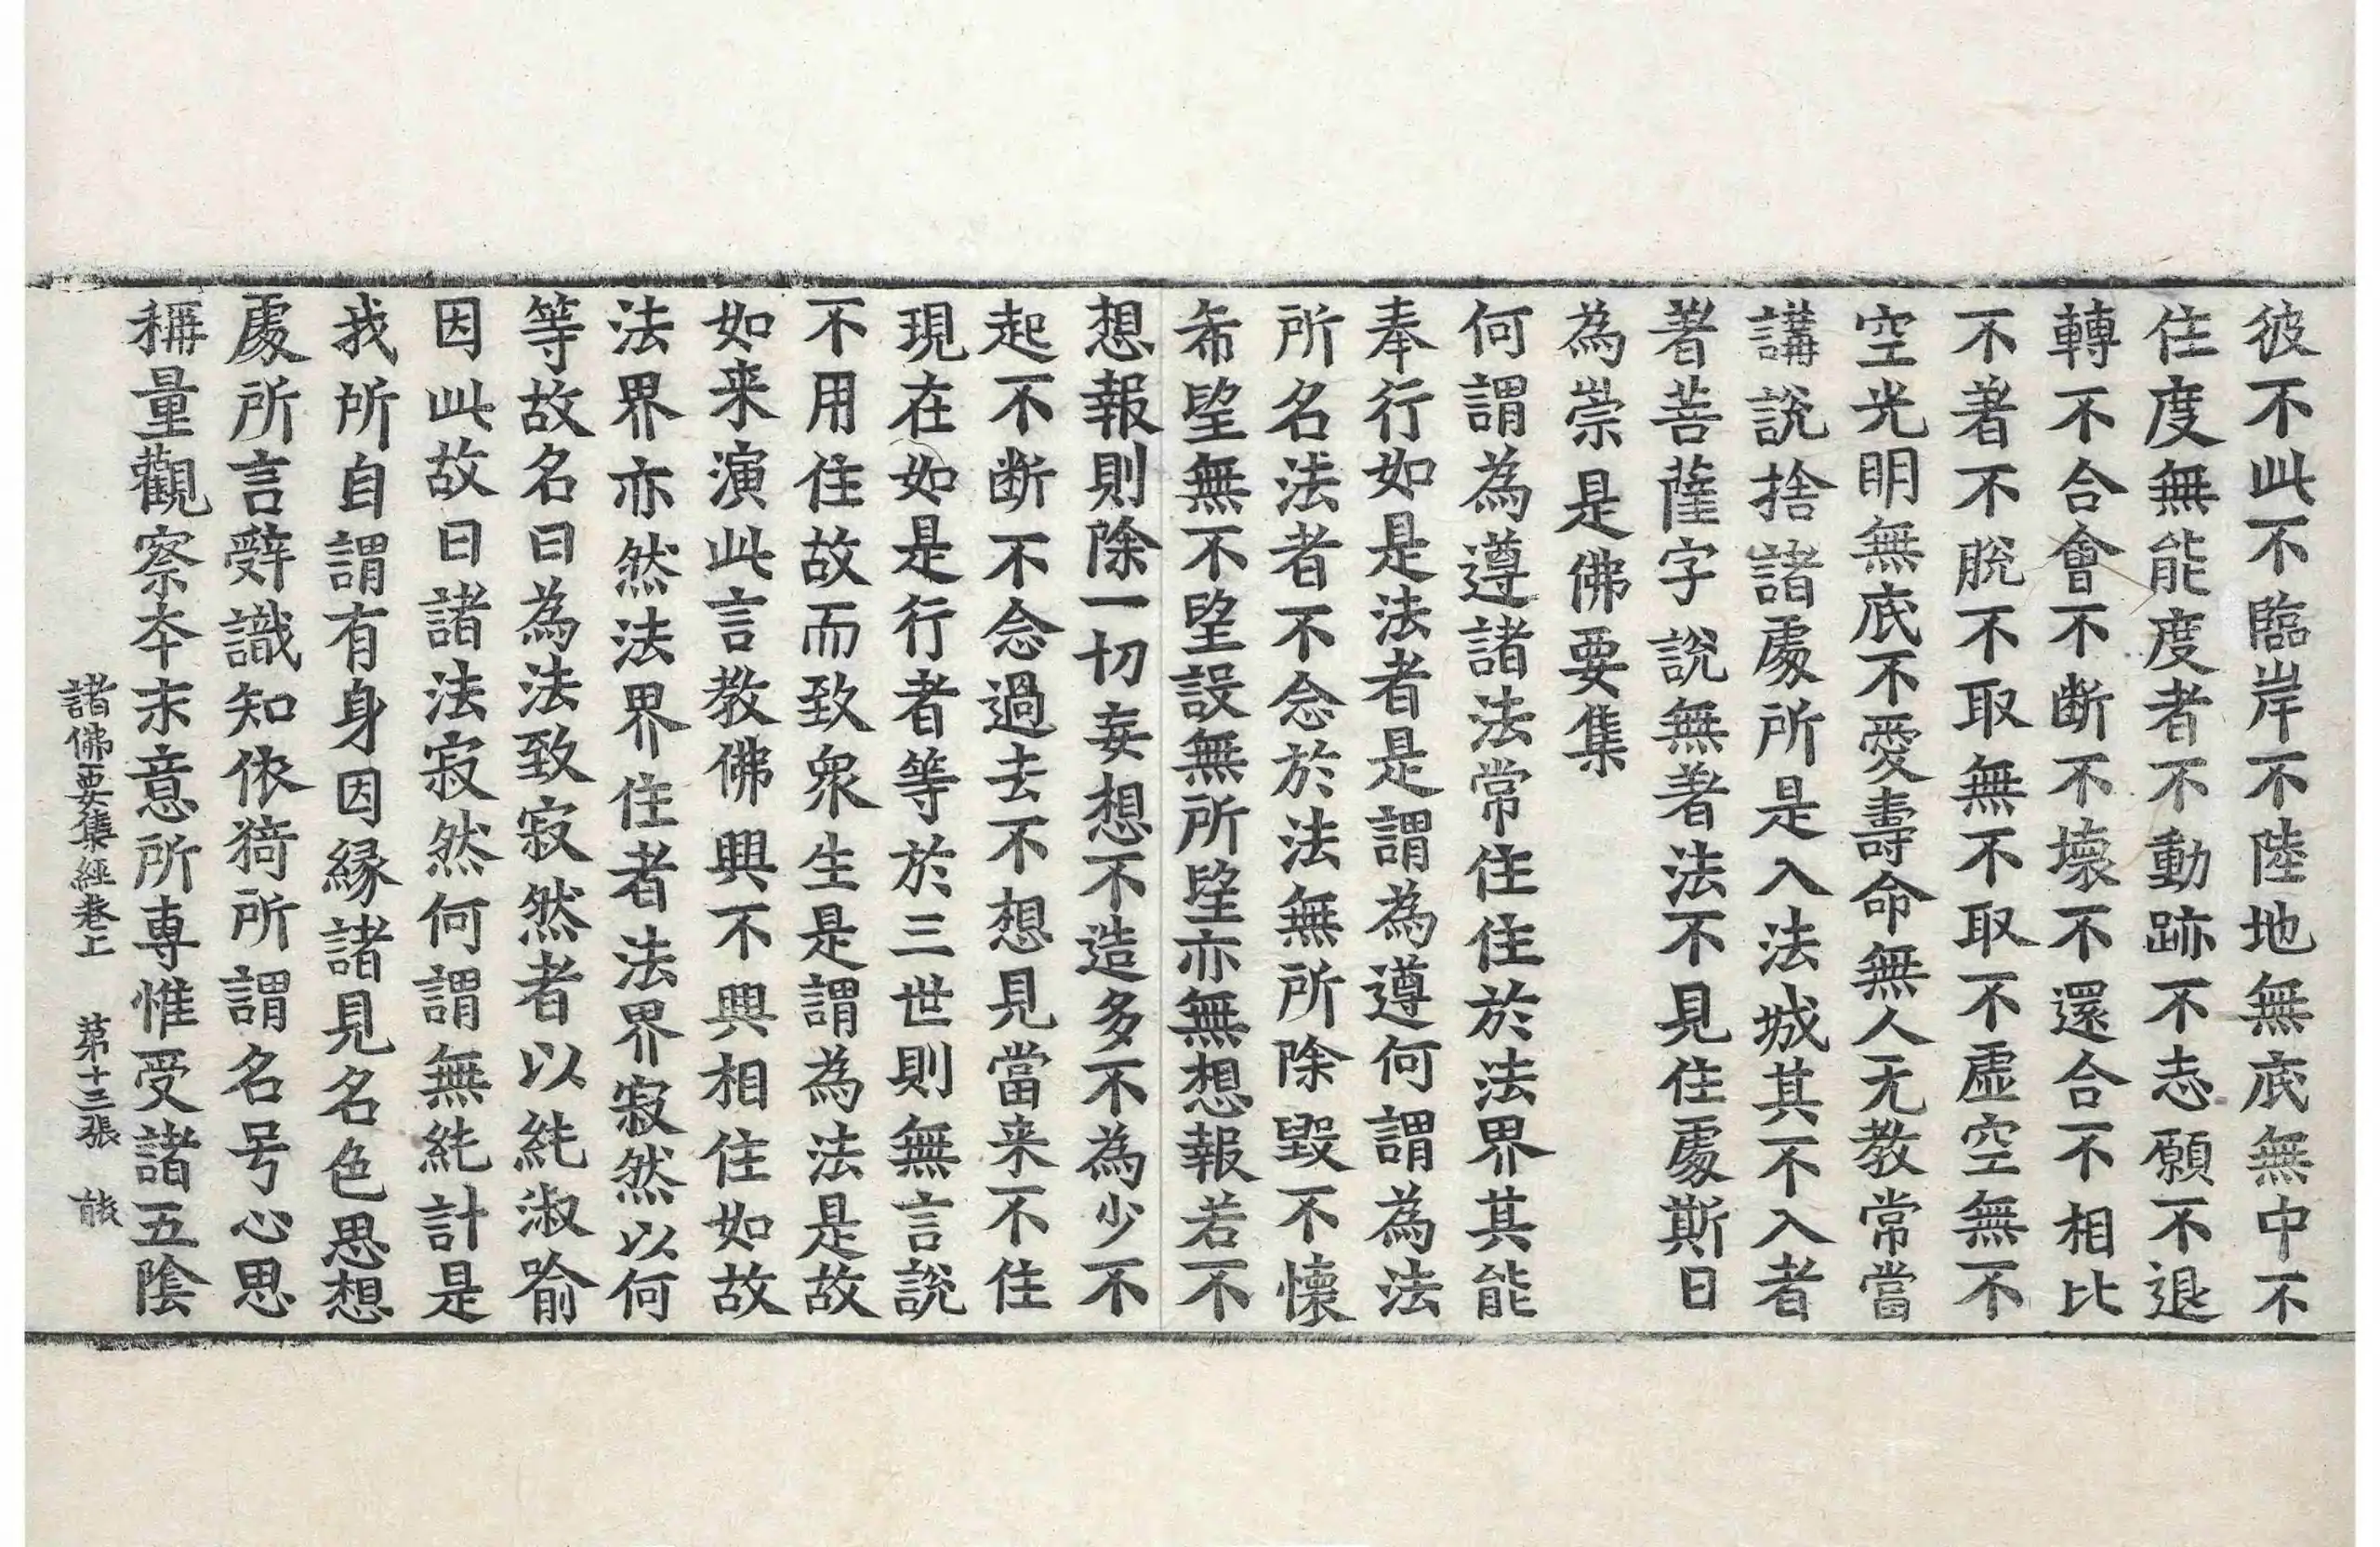 彼不此不臨岸不陸地無底無中不
住度無能度者不動跡不志願不退
轉不合會不断不壞不還合不相比
不著不脫不取無不取不虛空無不
空光明無底不愛壽命無人无教常當
講說捨諸處所是入法城其不入者
著菩薩字說無著法不見住處斯曰
為崇是佛要集
何謂為遵諸法常住住於法界其能
奉行如是法者是謂為遵何謂為法
所名法者不念於法無所除毀不懷
希望無不望設無所望亦無想報若不
想報則除一切妄想不造多不為少不
起不断不念過去不想見當来不住
現在如是行者等於三世則無言說
不用住故而致衆生是謂為法是故
如来演此言教佛興不興相住如故
法界亦然法界住者法界寂然以何
等故名曰為法致寂然者以純淑喻
因此故曰諸法寂然何謂無純計是
我所自謂有身因緣諸見名色思想
處所言辭識知依猗所謂名号心思
稱量觀察本末意所專惟受諸五陰
諸佛要集經卷上 第十三張 能